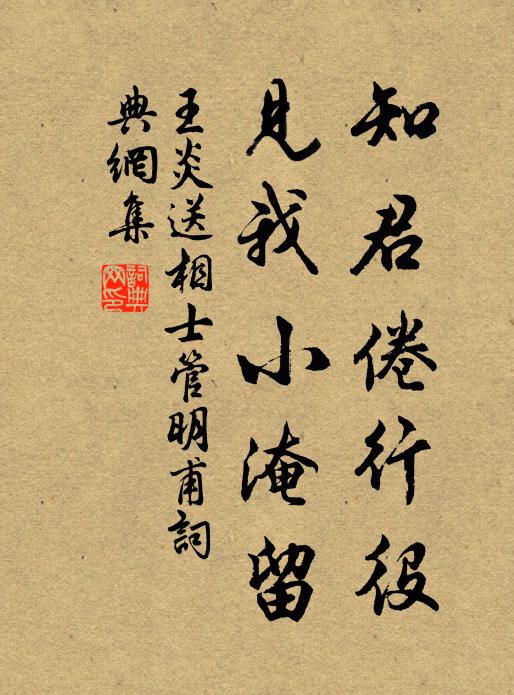 知君倦行役
見我小淹留
王炎送相士管明甫詞
典網集
詞典网印